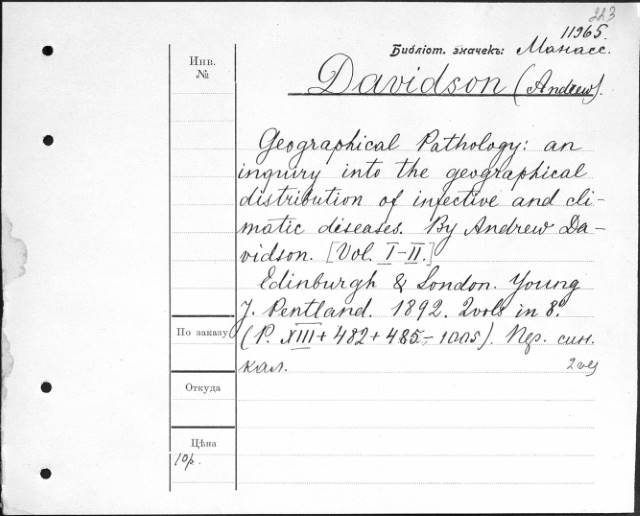 223
11965.
Библіот. значекъ: Манасс.
Инв.
№
Davidson (Andrew).
Geographical Pathology: an
inquiry into the geographical
distribution of infective and cli-
matic diseases. By Andrew Da-
vidson. [Vol. I-II.]
Edinburgh & London. Young
J. Pentland. 1892. 2 vols in 8º.
По заказу
(P. XIII + 482 + 485-1005). Пер. син.
кал.
Откуда
Цѣна
10р.